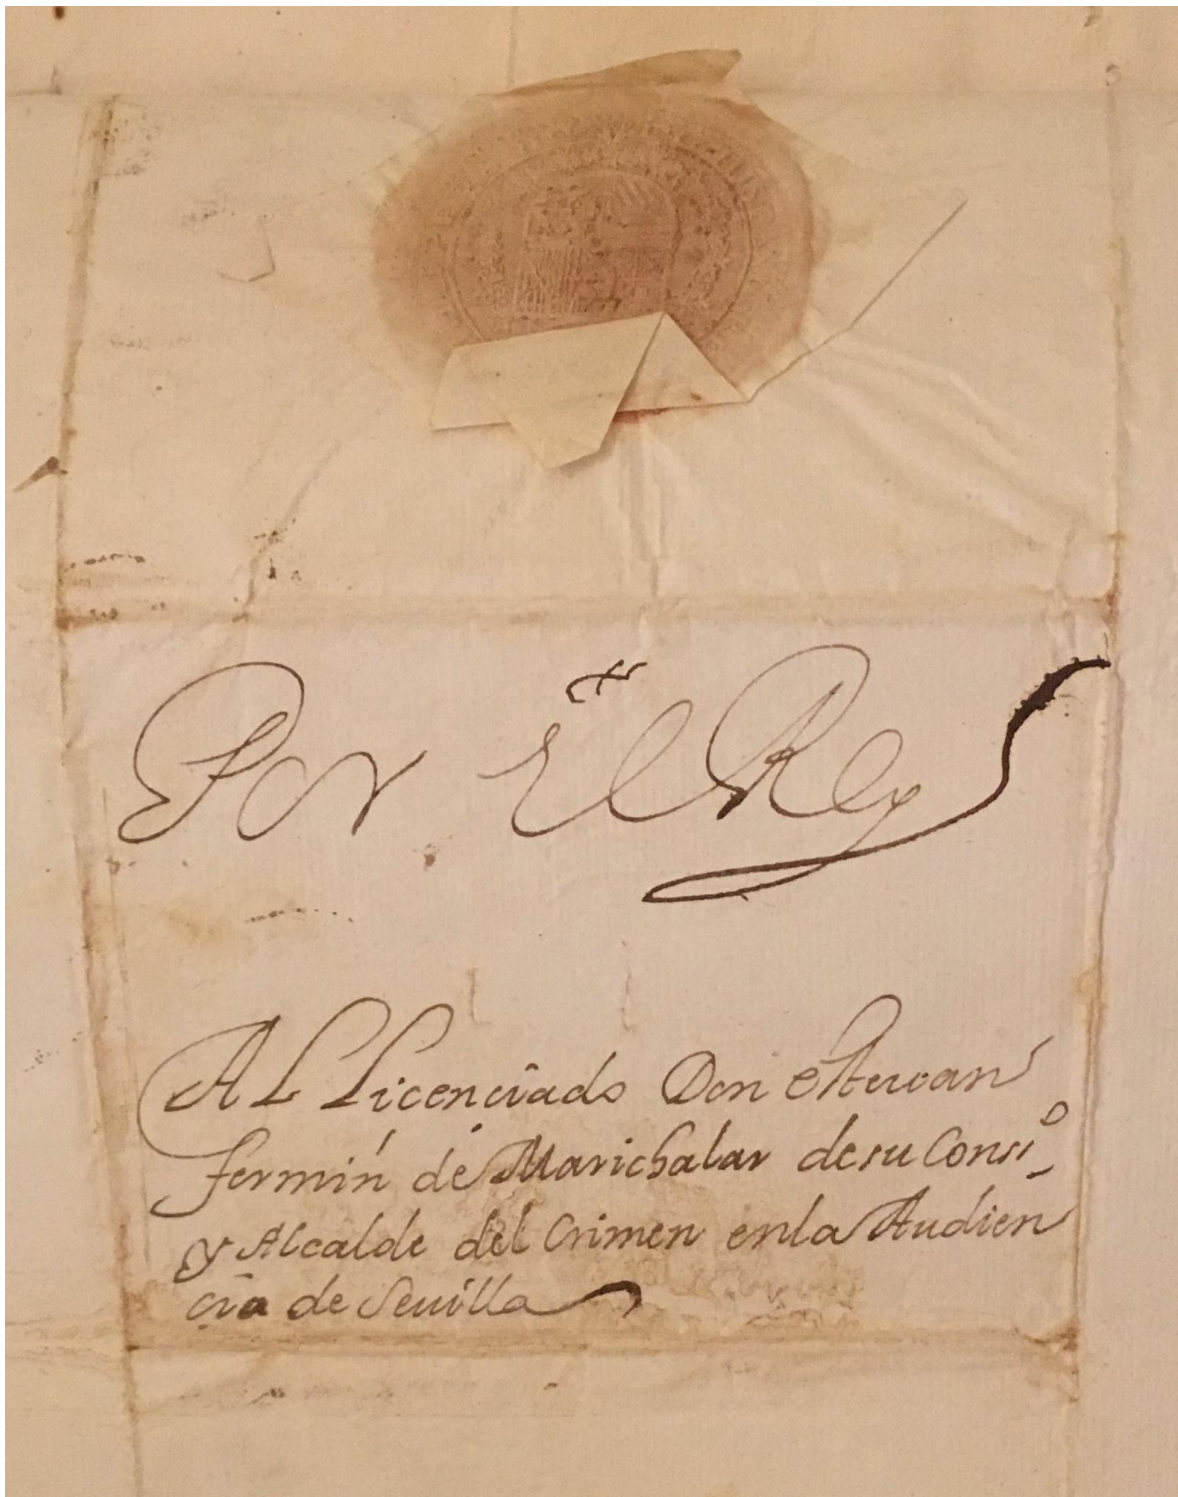 Por El Rey
Al Licenciado Don esteuan
fermin de Marichalar de su Consº
y Alcalde del Crimen en la Audien
cia de Seuilla